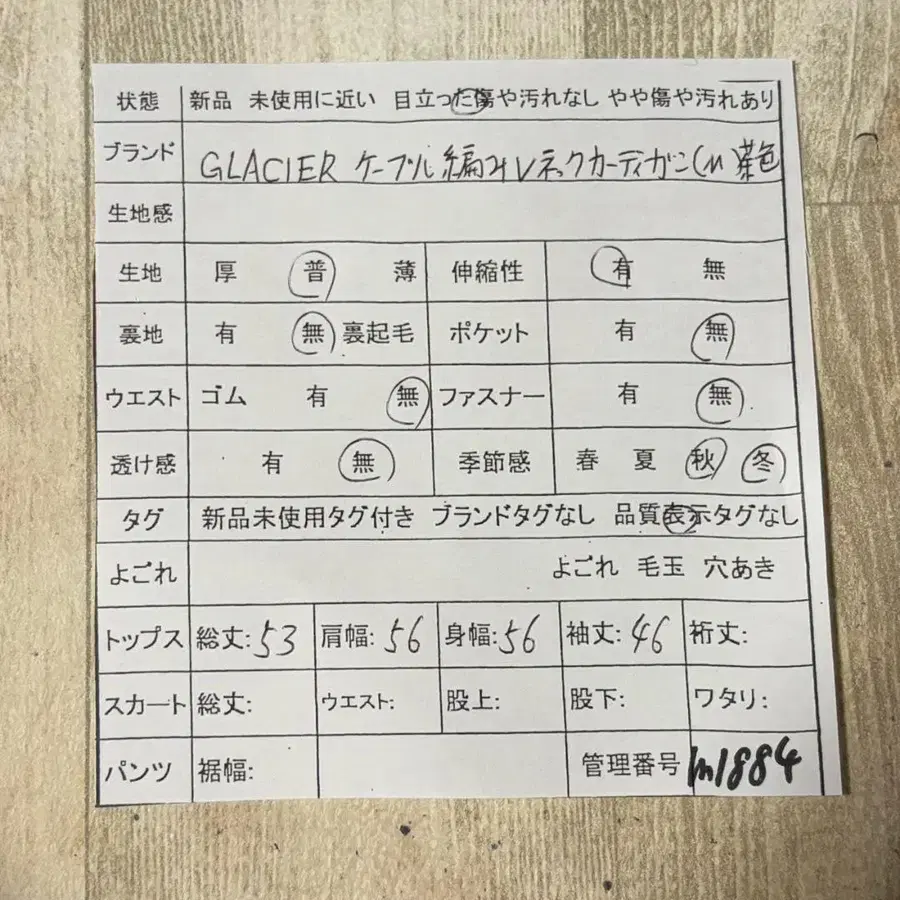 状態 新品 未使用に近い 目立った傷や汚れなし やや傷や汚れあり
ブランド GLACIER ケーブル編みVネックカーディガン(M)茶色
生地感
生地 厚 普 薄 伸縮性 有 無
裏地 有 無 裏起毛 ポケット 有 無
ウエスト ゴム 有 無 ファスナー 有 無
透け感 有 無 季節感 春 夏 秋 冬
タグ 新品未使用タグ付き ブランドタグなし 品質表示タグなし
よごれ よごれ 毛玉 穴あき
トップス 総丈:53 肩幅:56 身幅:56 袖丈:46 裄丈:
スカート 総丈: ウエスト: 股上: 股下: ワタリ:
パンツ 裾幅: 管理番号 m1884